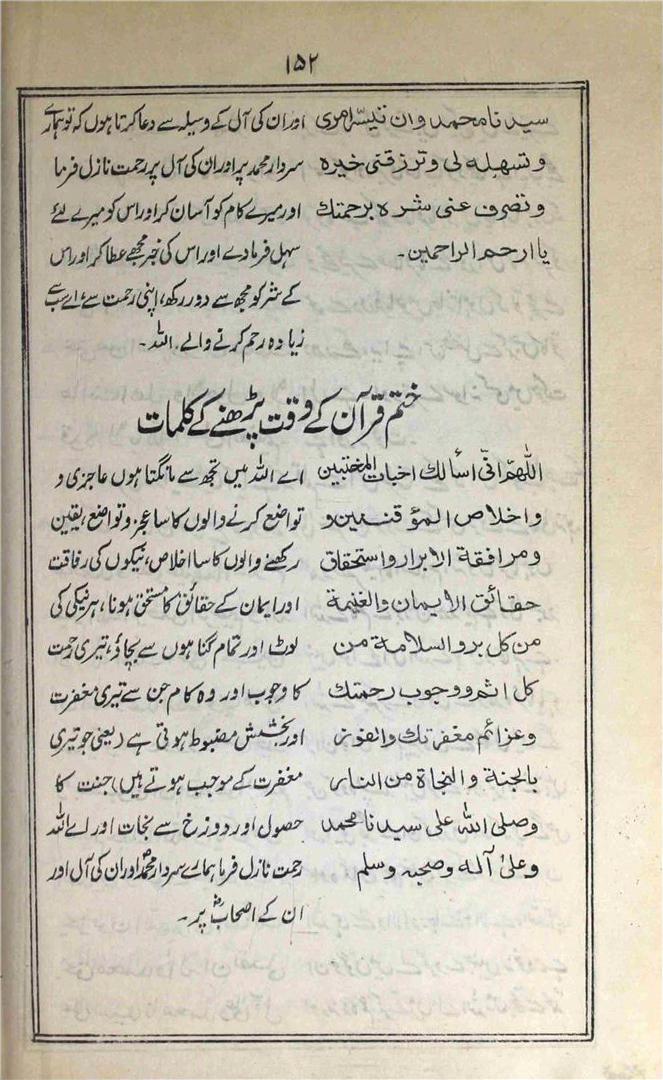 ۱۵۲
سیدنا محمد وان تیسّر امری
وتسهله لی وترزقنی خیره
وتصرف عنی شره برحمتك
یا ارحم الراحمین۔
اور ان کی آل کے وسیلہ سے دعا کرتا ہوں کہ تو ہمارے
سردار محمد پر اور ان کی آل پر رحمت نازل فرما
اور میرے کام کو آسان کر اور اس کو میرے لئے
سہل فرما دے اور اس کی خیر مجھے عطا کر اور اس
کے شر کو مجھ سے دور رکھ، اپنی رحمت سے، اے سب سے
زیادہ رحم کرنے والے اللہ۔
ختم قرآن کے وقت پڑھنے کے کلمات
اللّٰهم انّی اسألك اخبات المخبتین
واخلاص المؤقنین و
ومرافقة الابرار واستحقاق
حقائق الایمان والغنیمة
من کل بر والسلامة من
کل اثم ووجوب رحمتك
وعزائم مغفرتك والفوز
بالجنة والنجاة من النار
وصلی اللّٰه علی سیدنا محمد
وعلیٰ آله وصحبه وسلم
اے اللہ میں تجھ سے مانگتا ہوں عاجزی و
تواضع کرنے والوں کا سا عجز و تواضع، یقین
رکھنے والوں کا سا اخلاص، نیکوں کی رفاقت
اور ایمان کے حقائق کا مستحق ہونا، ہر نیکی کی
لوٹ اور تمام گناہوں سے بچاؤ، تیری رحمت
کا وجوب اور وہ کام جن سے تیری مغفرت
اور بخشش مضبوط ہوتی ہے (یعنی جو تیری
مغفرت کے موجب ہوتے ہیں) جنت کا
حصول اور دوزخ سے نجات اور اے اللہ
رحمت نازل فرما ہمارے سردار محمدؐ اور ان کی آل اور
ان کے اصحابؓ پر۔